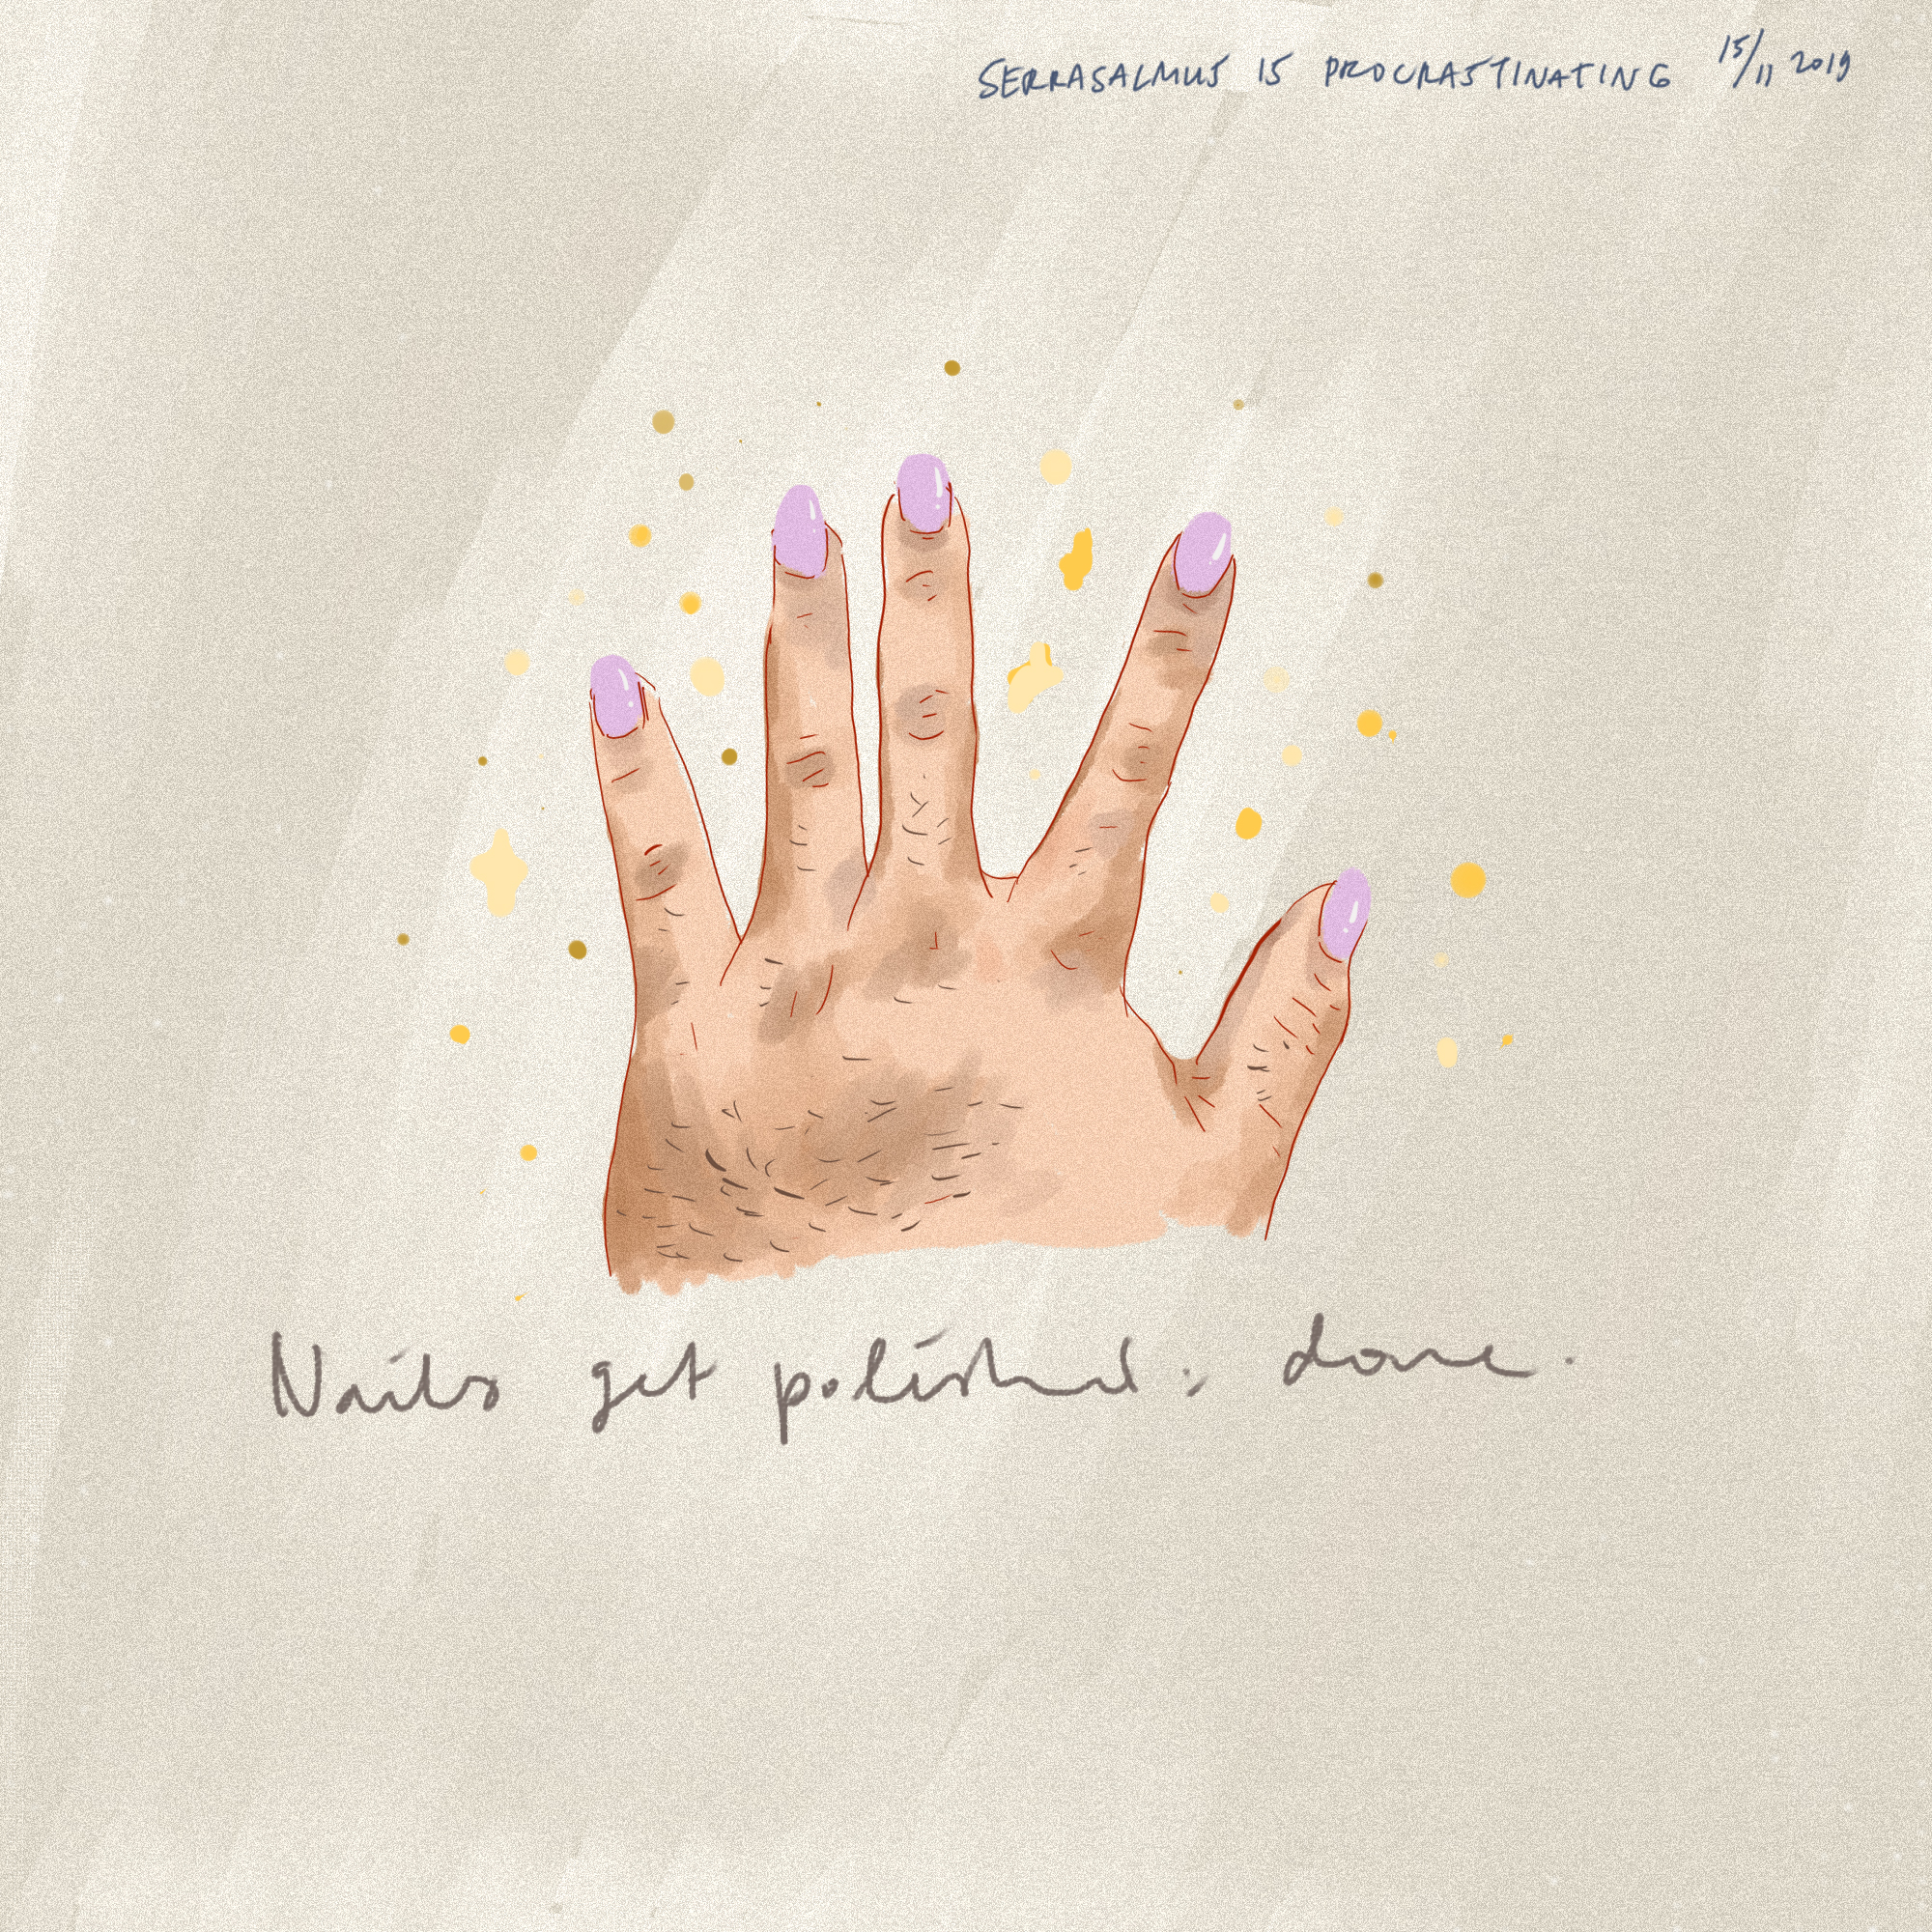 SERRASALMUS IS PROCRASTINATING 15/11 2019
Nails get polished; done.